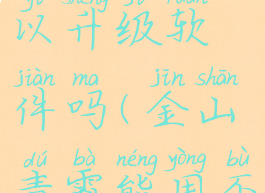 yǐ shēng jí ruǎn
以升级软
jiàn ma jīn shān
件吗(金山
dú bà néng yòng bù
毒霸能用不